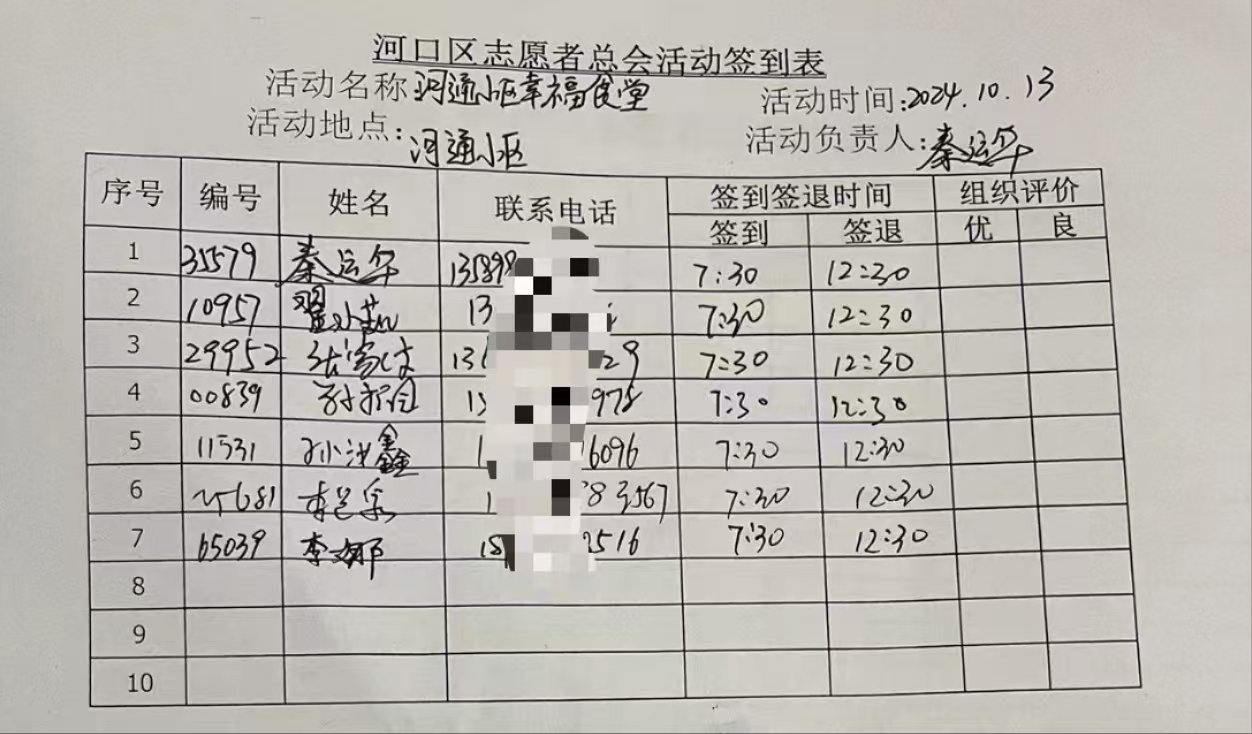 河口区志愿者总会活动签到表
活动名称 河通小区幸福食堂 活动时间:2024.10.13
活动地点: 河通小区 活动负责人:秦运华
序号 编号 姓名 联系电话 签到签退时间 组织评价
签到 签退 优 良
1 35579 秦运华 13589 7:30 12:30
2 10957 翟小 13 7:30 12:30
3 29952 张 13 29 7:30 12:30
4 00839 孙 15 978 7:30 12:30
5 11531 孙 鑫 1 6096 7:30 12:30
6 25681 李 1 8 3567 7:30 12:30
7 65039 李娜 18 2516 7:30 12:30
8
9
10